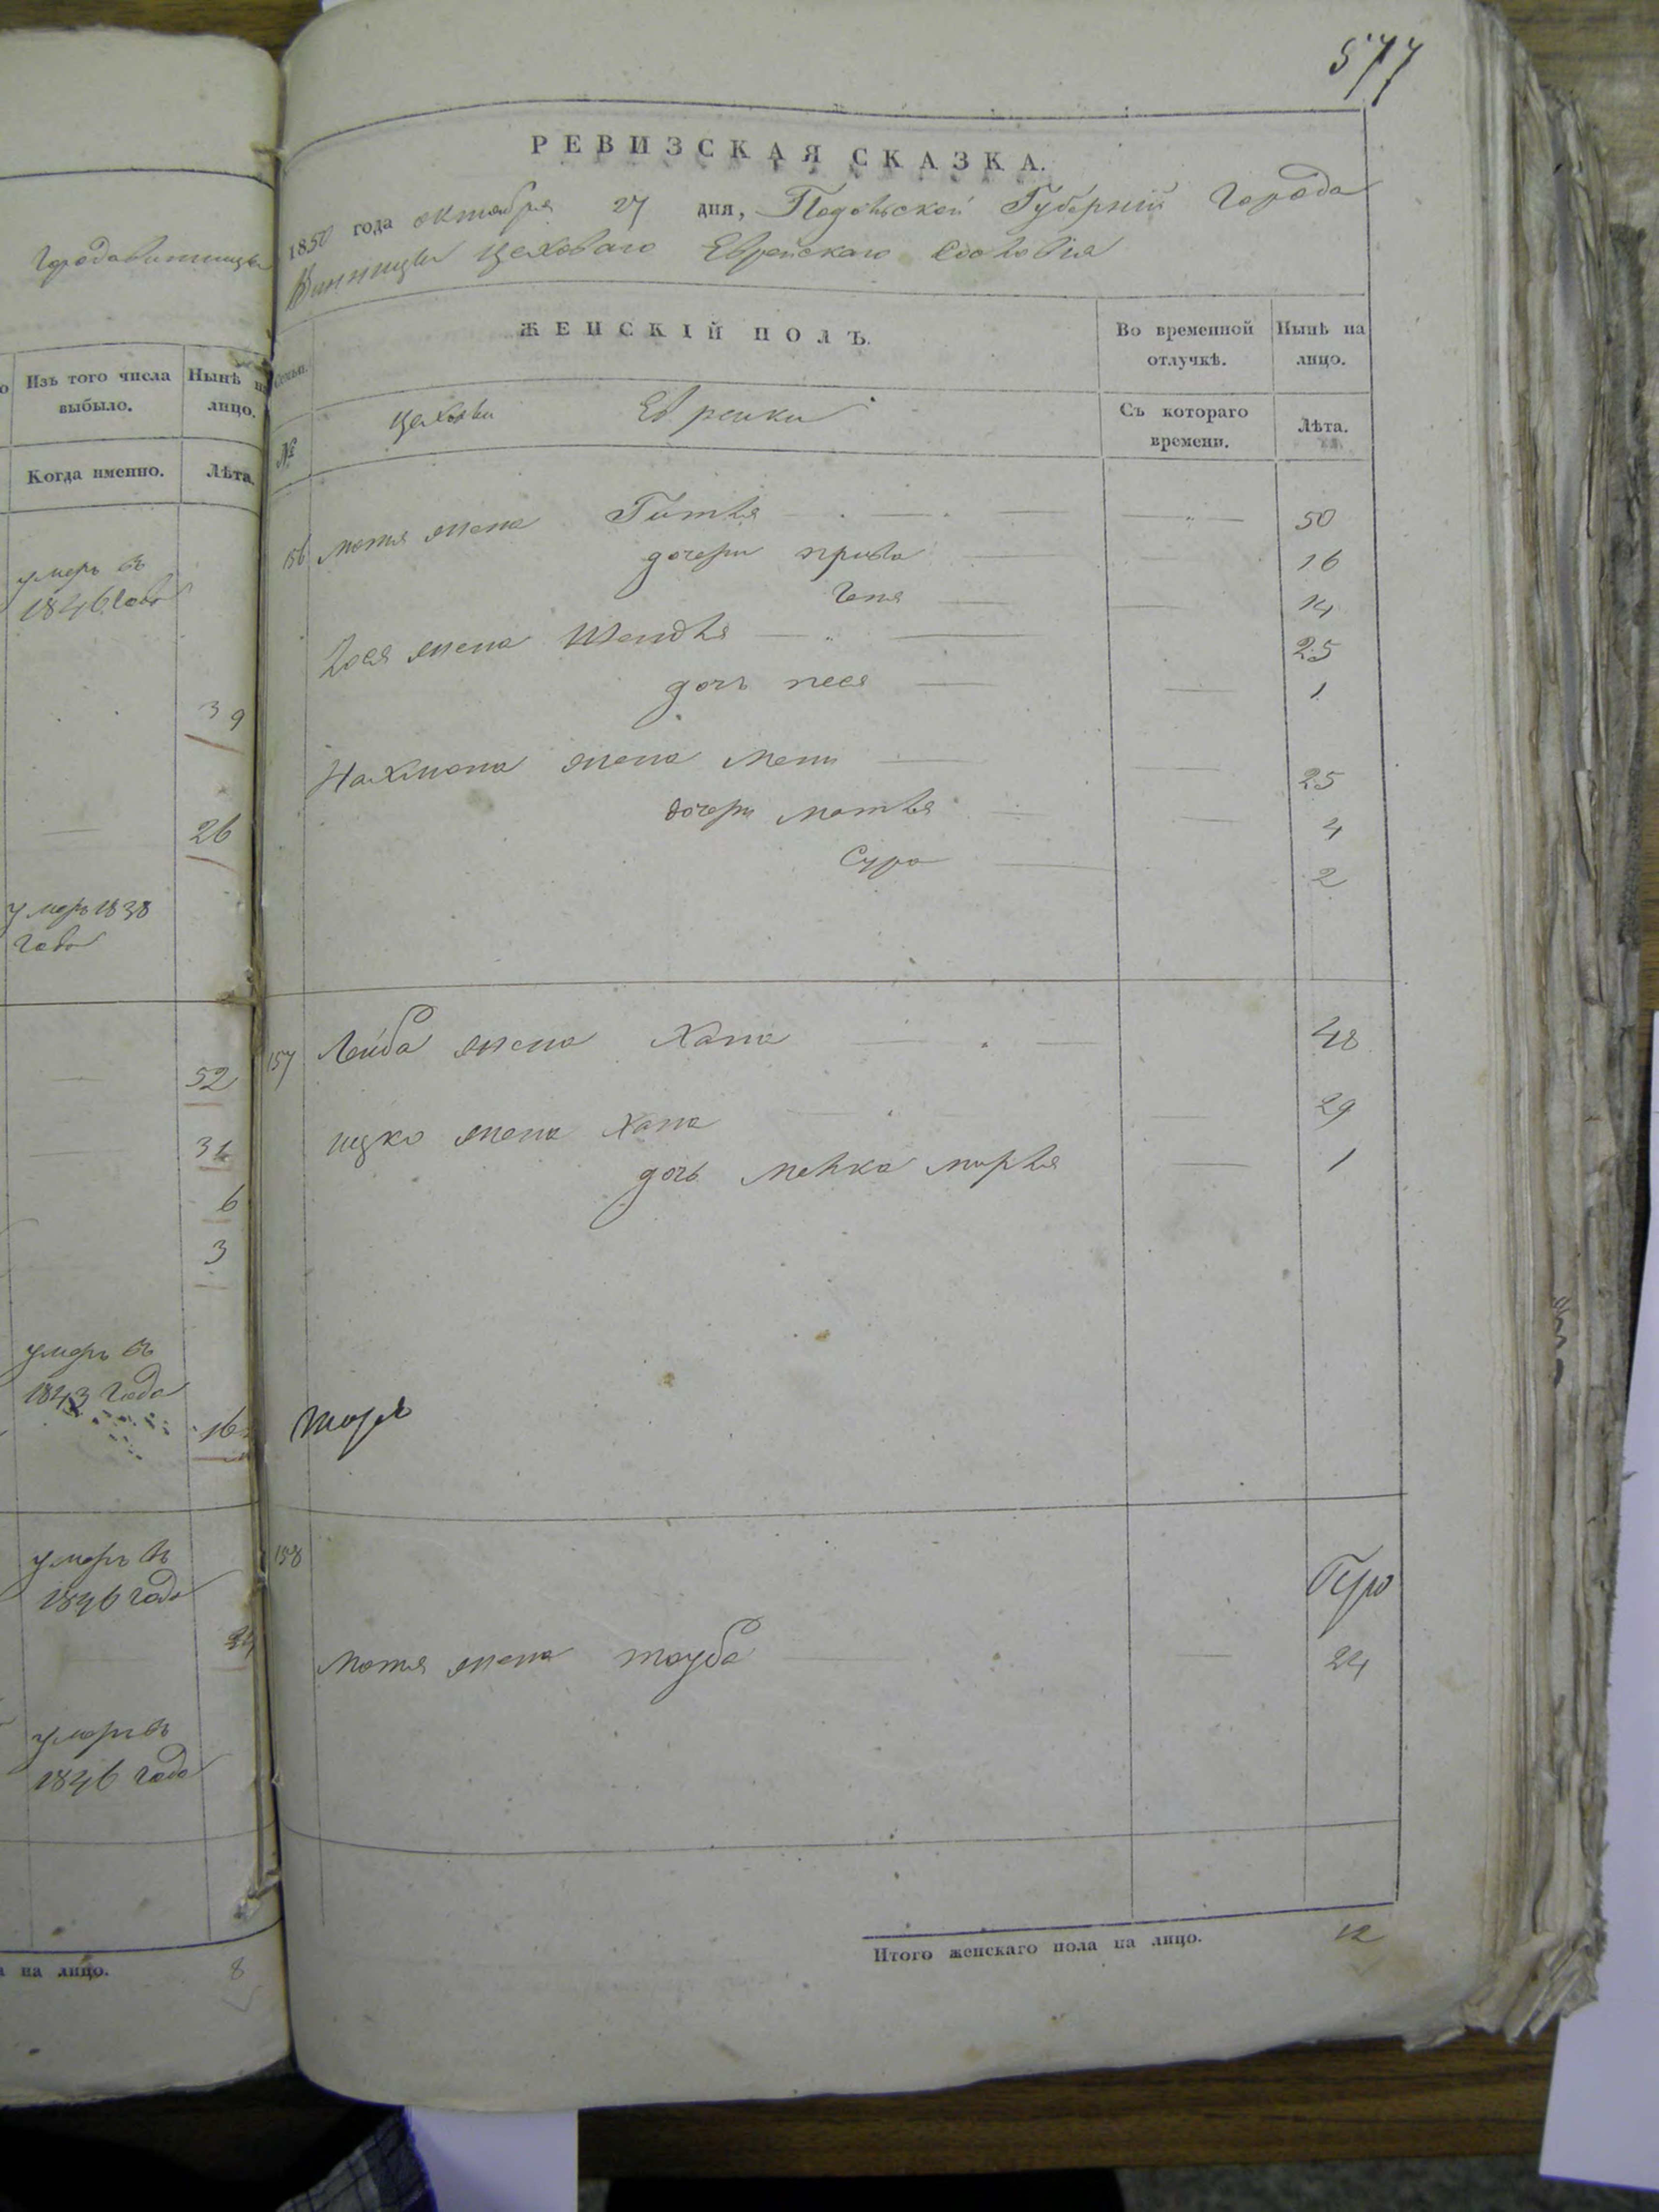 Города Винницы
Изъ того числа выбыло.
Нынѣ на лицо.
Когда именно.
Лѣта.
умеръ въ
1846 года
39
26
умеръ 1838
года
52
31
6
3
умеръ въ
1843 года
16
умеръ въ
1846 года
24
умеръ въ
1846 года
на лицо. 8
577
РЕВИЗСКАЯ СКАЗКА.
1850 года октября 27 дня, Подольской Губерній Города
Винницы цеховаго Еврейскаго Сословія
№ Семьи.
ЖЕНСКІЙ ПОЛЪ.
Во временной отлучкѣ.
Нынѣ на лицо.
цеховы Еврейки
Съ котораго времени.
Лѣта.
156 Мотя жена Гитля 50
дочери прива 16
Геня 14
Іося жена Шендля 25
дочь песя 1
Нахмана жена Мени 25
дочери Мотля 4
Сура 2
157 Лейба жена Хана 48
ицко жена Хана 29
дочь Менка мирля 1
158
Мотя жена тауба 24
Итого женскаго пола на лицо. 12